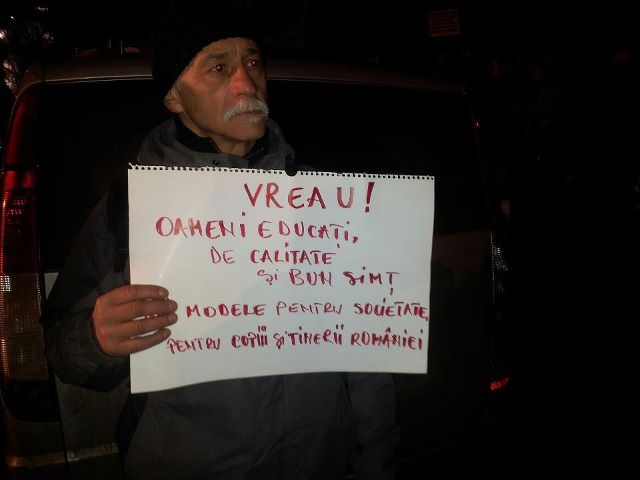 VREAU!
OAMENI EDUCAȚI,
DE CALITATE
și BUN SIMȚ
MODELE PENTRU SOCIETATE,
PENTRU COPIII ȘI TINERII ROMÂNIEI